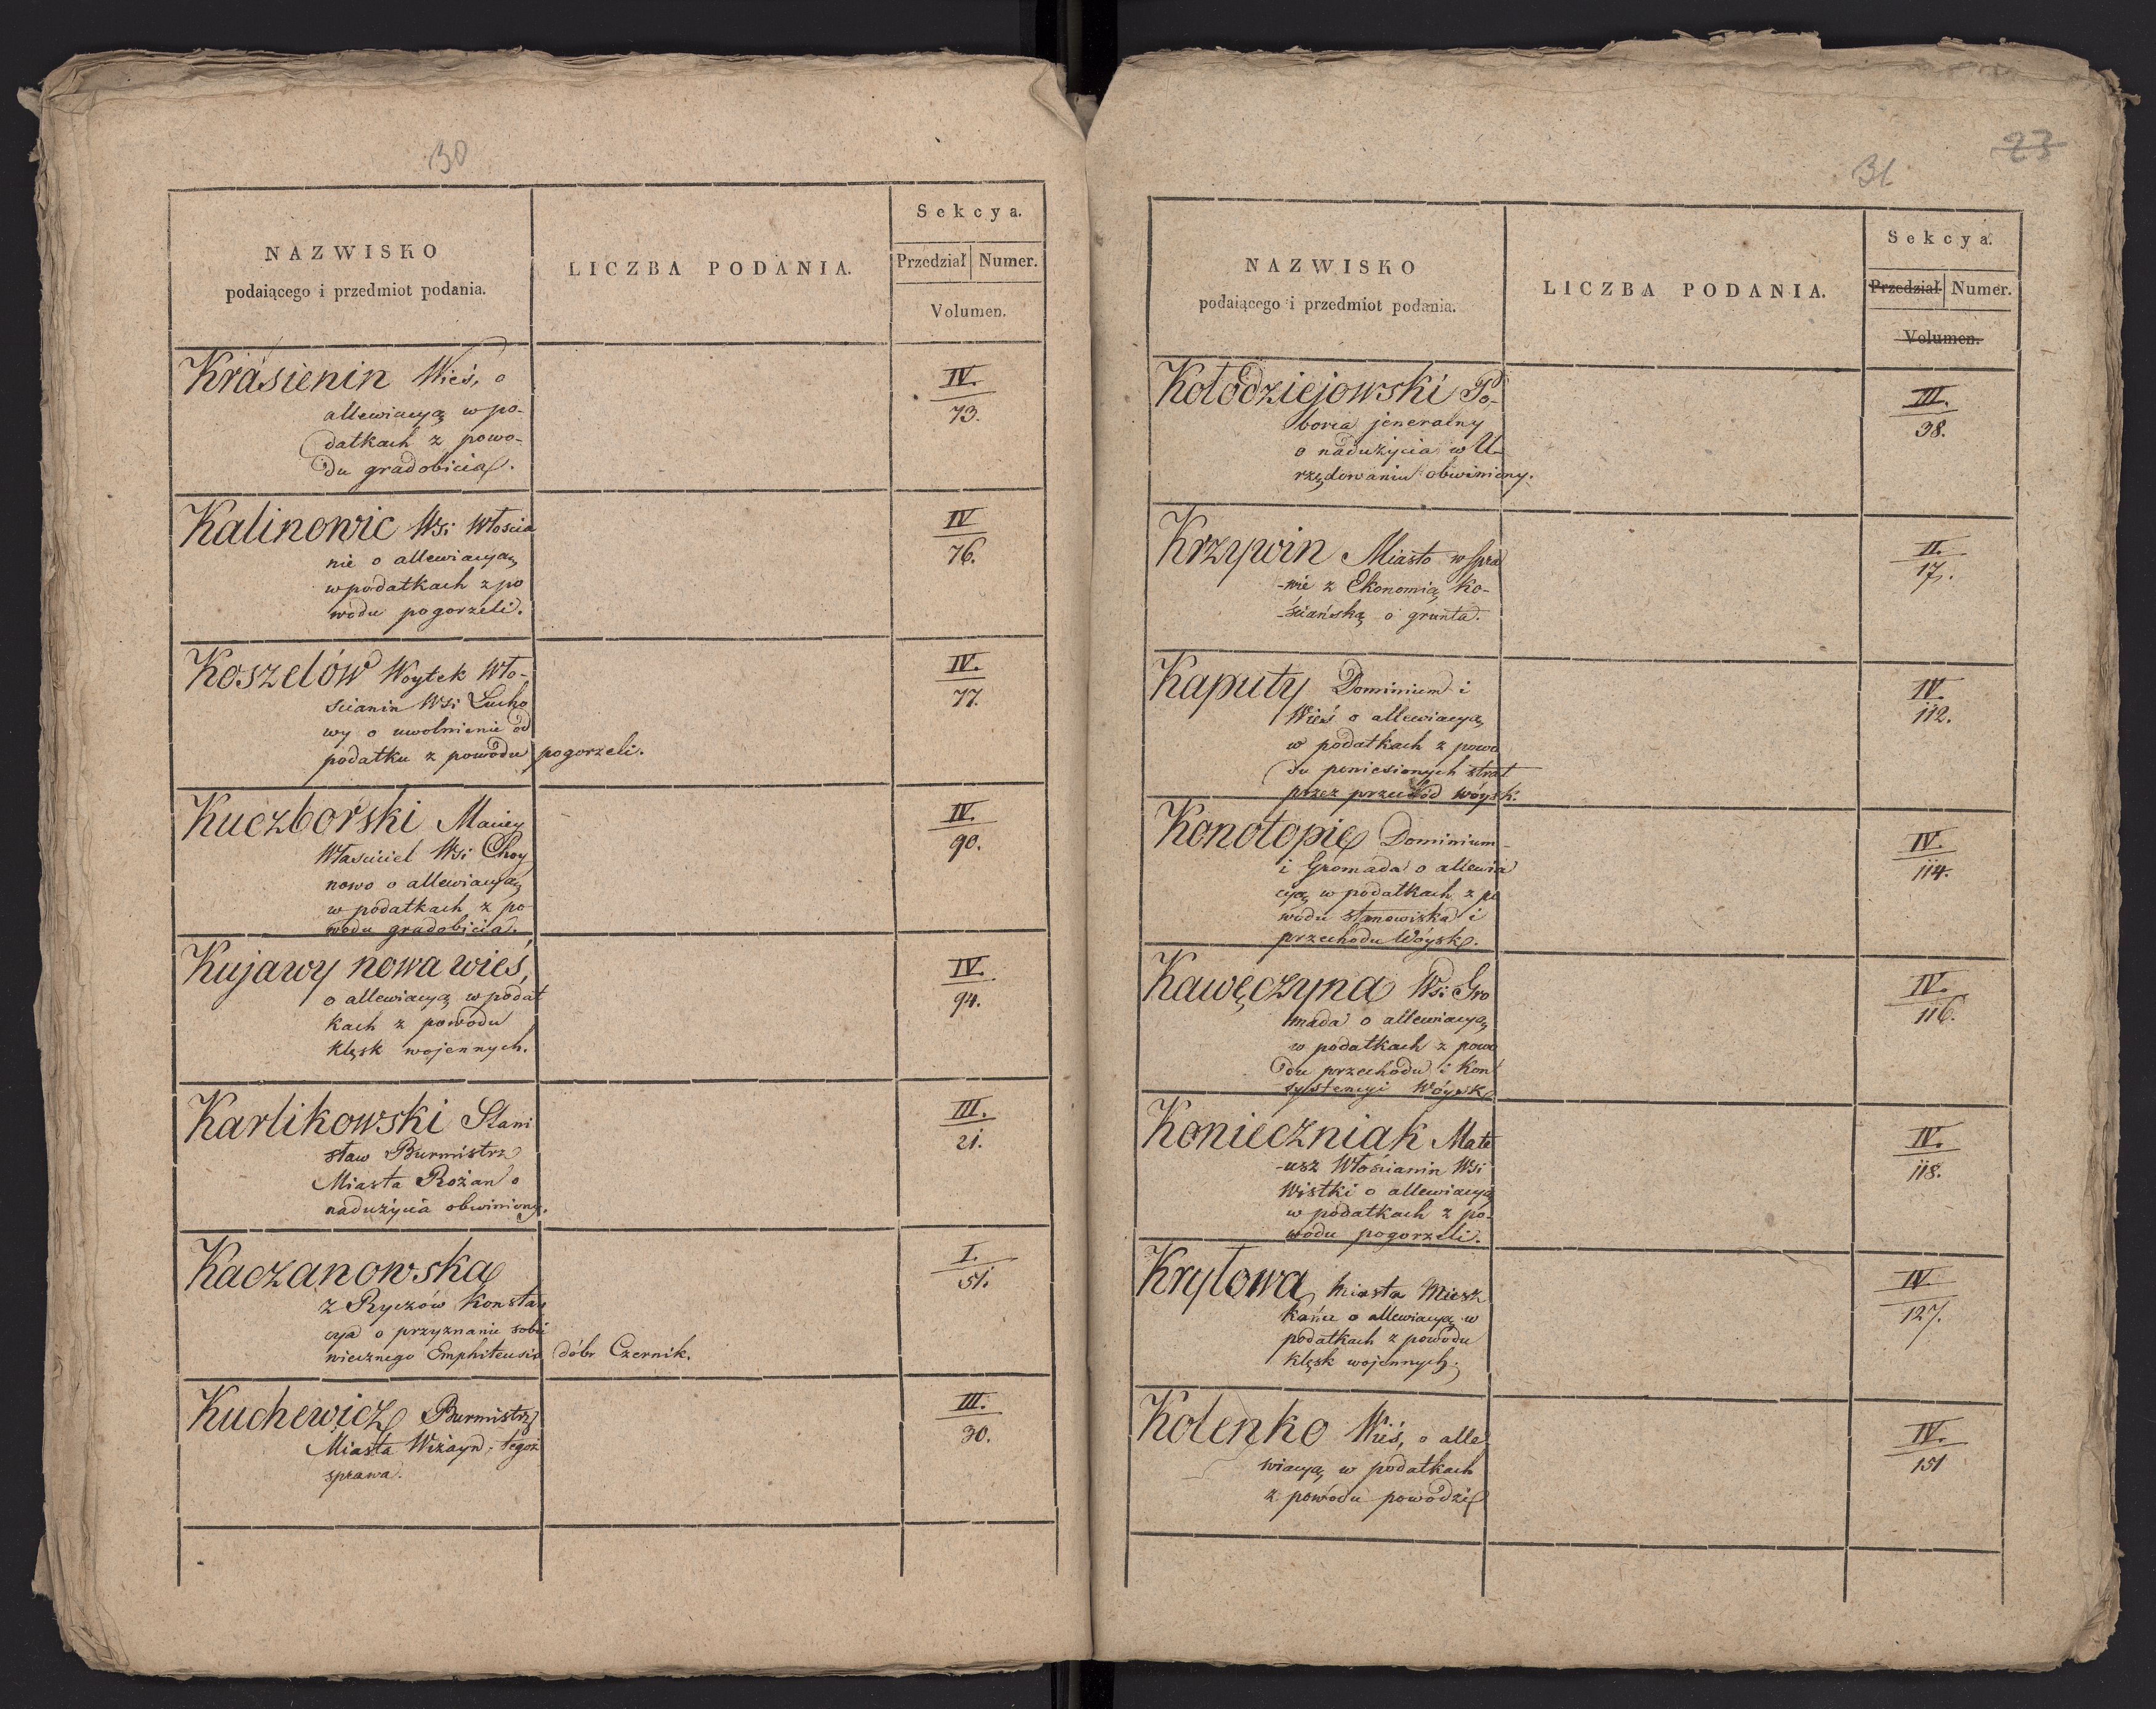 30
NAZWISKO
podaiącego i przedmiot podania.
LICZBA PODANIA.
Sekcya.
Przedział Numer.
Volumen.
Krasienin Wieś, o
allewiacyą w po-
datkach z powo-
du gradobicia.
IV.
73.
Kalinowic Wsi Włościa
nie o allewiacyą
w podatkach z po
wodu pogorzeli.
IV
76.
Koszelów Woytek Wło-
scianin Wsi Lucho
wy o uwolnienie od
podatku z powodu pogorzeli.
IV.
77.
Kuczborski Maciey
Właściciel Wsi Choy
nowo o allewiacyą
w podatkach z po
wodu gradobicia.
IV.
90.
Kujawy nowa wieś,
o allewiacyą w podat
kach z powodu
klęsk wojennych.
IV.
94.
Karlikowski Stani
sław Burmistrz
Miasta Rożan o
nadużycia obwiniony.
III.
21.
Kaczanowska
z Ryczów Konstan
cya o przyznanie sobie
wiecznego Emphiteusis dóbr Czernik.
I.
51.
Kuchewicz Burmistrz
Miasta Wiżayn, tegoż
sprawa.
III.
30.
23
31
NAZWISKO
podaiącego i przedmiot podania.
LICZBA PODANIA.
Sekcya.
Przedział Numer.
Volumen.
Kołodziejowski Po-
borca jeneralny
o nadużycia w U-
rzędowaniu obwiniony.
III.
38.
Krzywin Miasto w spra
-wie z Ekonomią Ko-
-ściańską o grunta.
II.
17.
Kaputy Dominium i
Wieś o allewiacyą
w podatkach z powo
du poniesionych strat
przez przechód wóysk.
IV.
112.
Konotopie Dominium
i Gromada o allewia
cyą w podatkach z po
wodu stanowiska i
przechodu Wóysk.
IV.
114.
Kawęczyna Wsi Gro
mada o allewiacyą
w podatkach z powo
du przechodu i Kon
systencyi Wóysk
IV.
116.
Konieczniak Mate
-usz Włościanin Wsi
Wistki o allewiacyą
w podatkach z po-
wodu pogorzeli.
IV.
118.
Kryłowa Miasta Miesz
kańce o allewiacyą w
podatkach z powodu
klęsk wojennych.
IV
127.
Kolenko Wieś, o alle
wiacyą w podatkach
z powodu powodzi
IV.
151